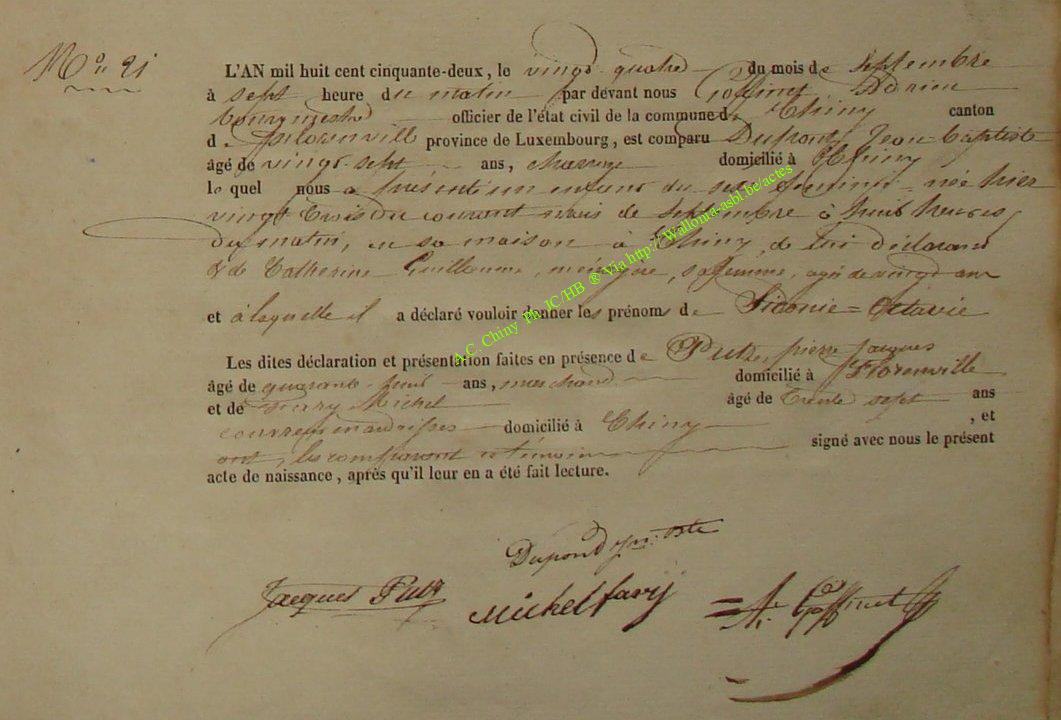 No 21
L'AN mil huit cent cinquante-deux, le vingt quatre du mois de Septembre
à sept heure du matin par devant nous Goffinet Adrien
bourgmestre officier de l'état civil de la commune d. Chiny canton
d. florenville province de Luxembourg, est comparu Dupont, Jean Baptiste
âgé de vingt sept ans, domicilié à Chiny
lequel nous a présenté un enfant du sexe féminin née hier
vingt trois du courant mois de Septembre à huit heures
du matin, en sa maison à Chiny, de lui déclarant
& de Catherine Guillaume, ménagère, sa femme, agée de vingt ans
et à laquelle il a déclaré vouloir donner les prénoms de Sidonie = Octavie
Les dites déclaration et présentation faites en présence de Putz, pierre jacques
âgé de quarante huit ans, marchand domicilié à Florenville
et de Michel âgé de trente sept ans
couvreur en ardoises domicilié à Chiny , et
ont, les comparant et témoins signé avec nous le présent
acte de naissance, après qu'il leur en a été fait lecture.
Dupond jn: bte
Jacques Putz Michel favÿ A. Goffinet
A.C. Chiny Ph. JC/HB ® Via http://Wallonia-asbl.be/actes